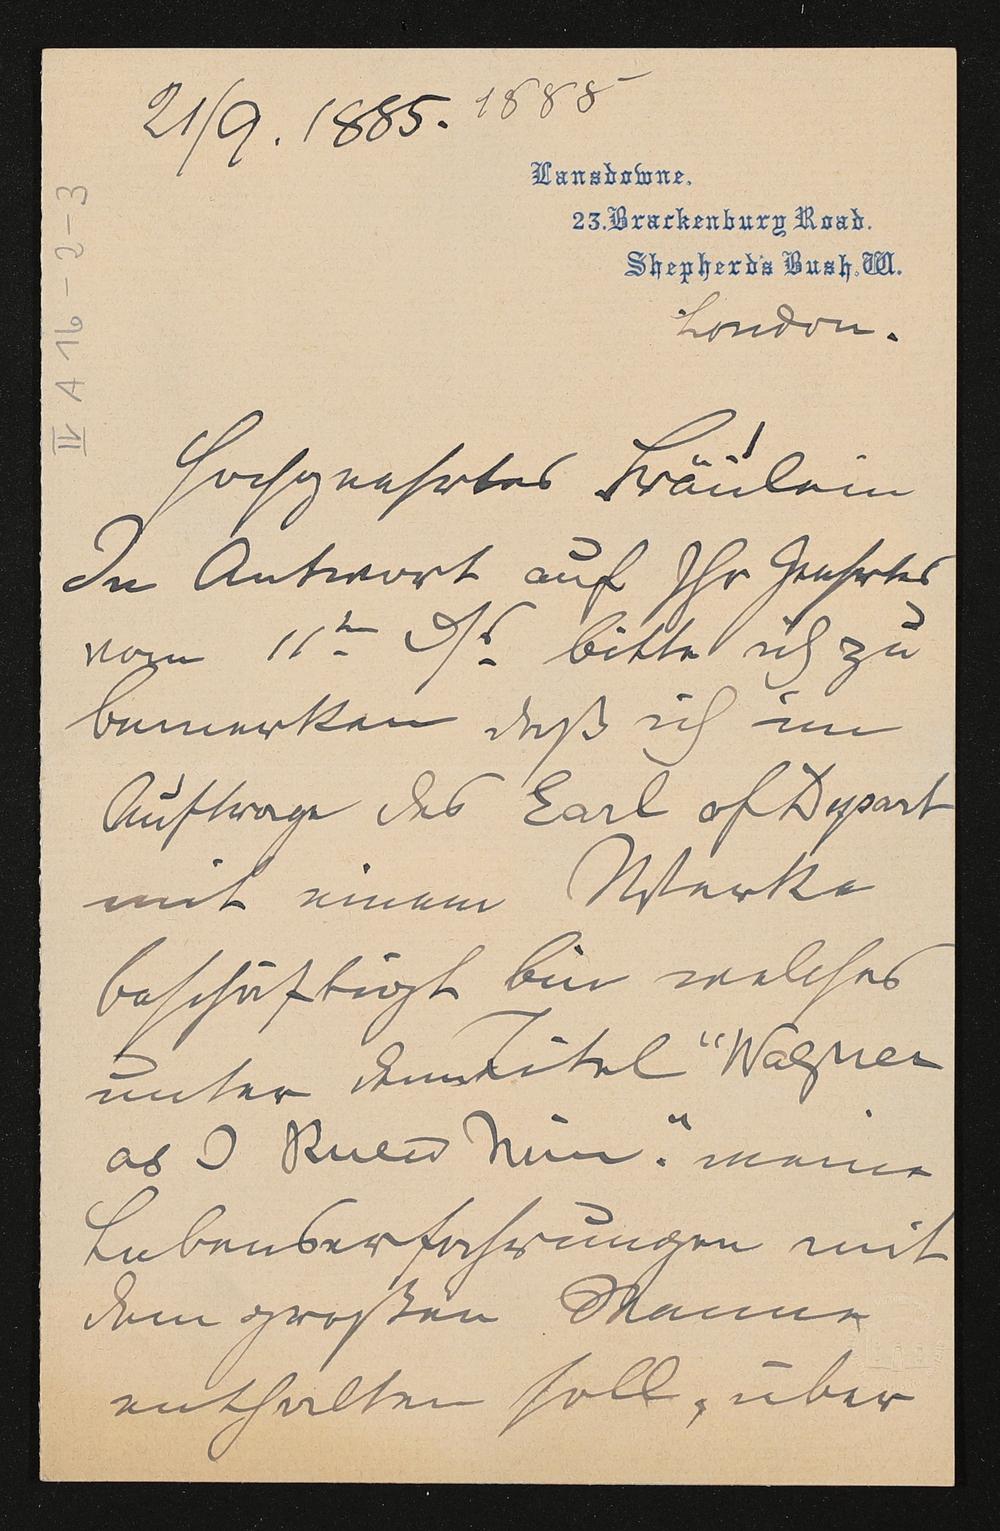 21/9. 1885. 1885
Lansdowne.
23. Brackenbury Road.
Shepherd's Bush. W.
London.
IV A 16-2-3
Hochgeehrtes Fräulein
In Antwort auf Ihr Geehrtes
vom 11ten bitte ich zu
bemerken daß ich im
Auftrage des Earl of Dysart
mit einem Werke
beschäftigt bin welches
unter dem Titel "Wagner
as I Knew Him." meine
Lebenserfahrungen mit
dem großen Manne
enthalten soll, über